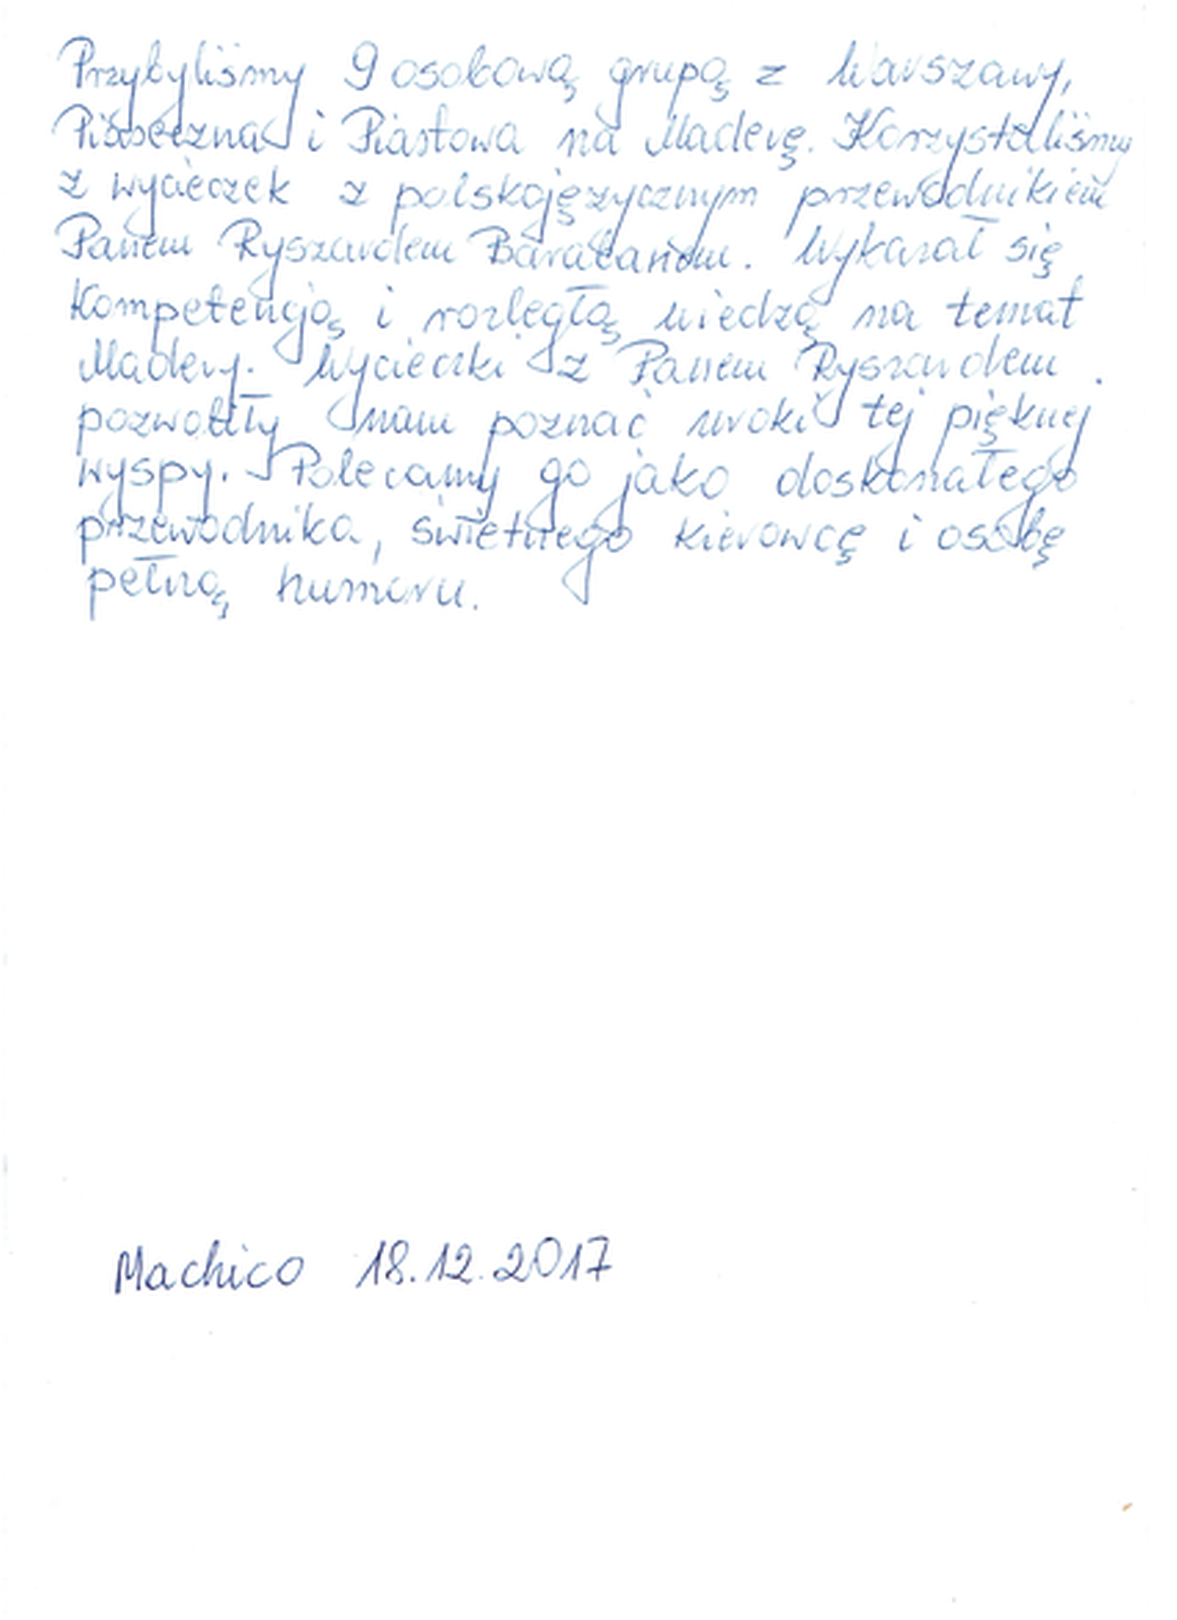 Przybyliśmy 9 osobową grupą z Warszawy,
i Piastowa na Maderę. Korzystaliśmy
z wycieczek z polskojęzycznym przewodnikiem
Panem Ryszardem. Wykazał się
kompetencją i rozległą wiedzą na temat
Madery. Wycieczki z Panem Ryszardem
pozwoliły nam poznać uroki tej pięknej
wyspy. Polecamy go jako doskonałego
przewodnika, świetnego kierowcę i osobę
pełną humoru.
Machico 18.12.2017